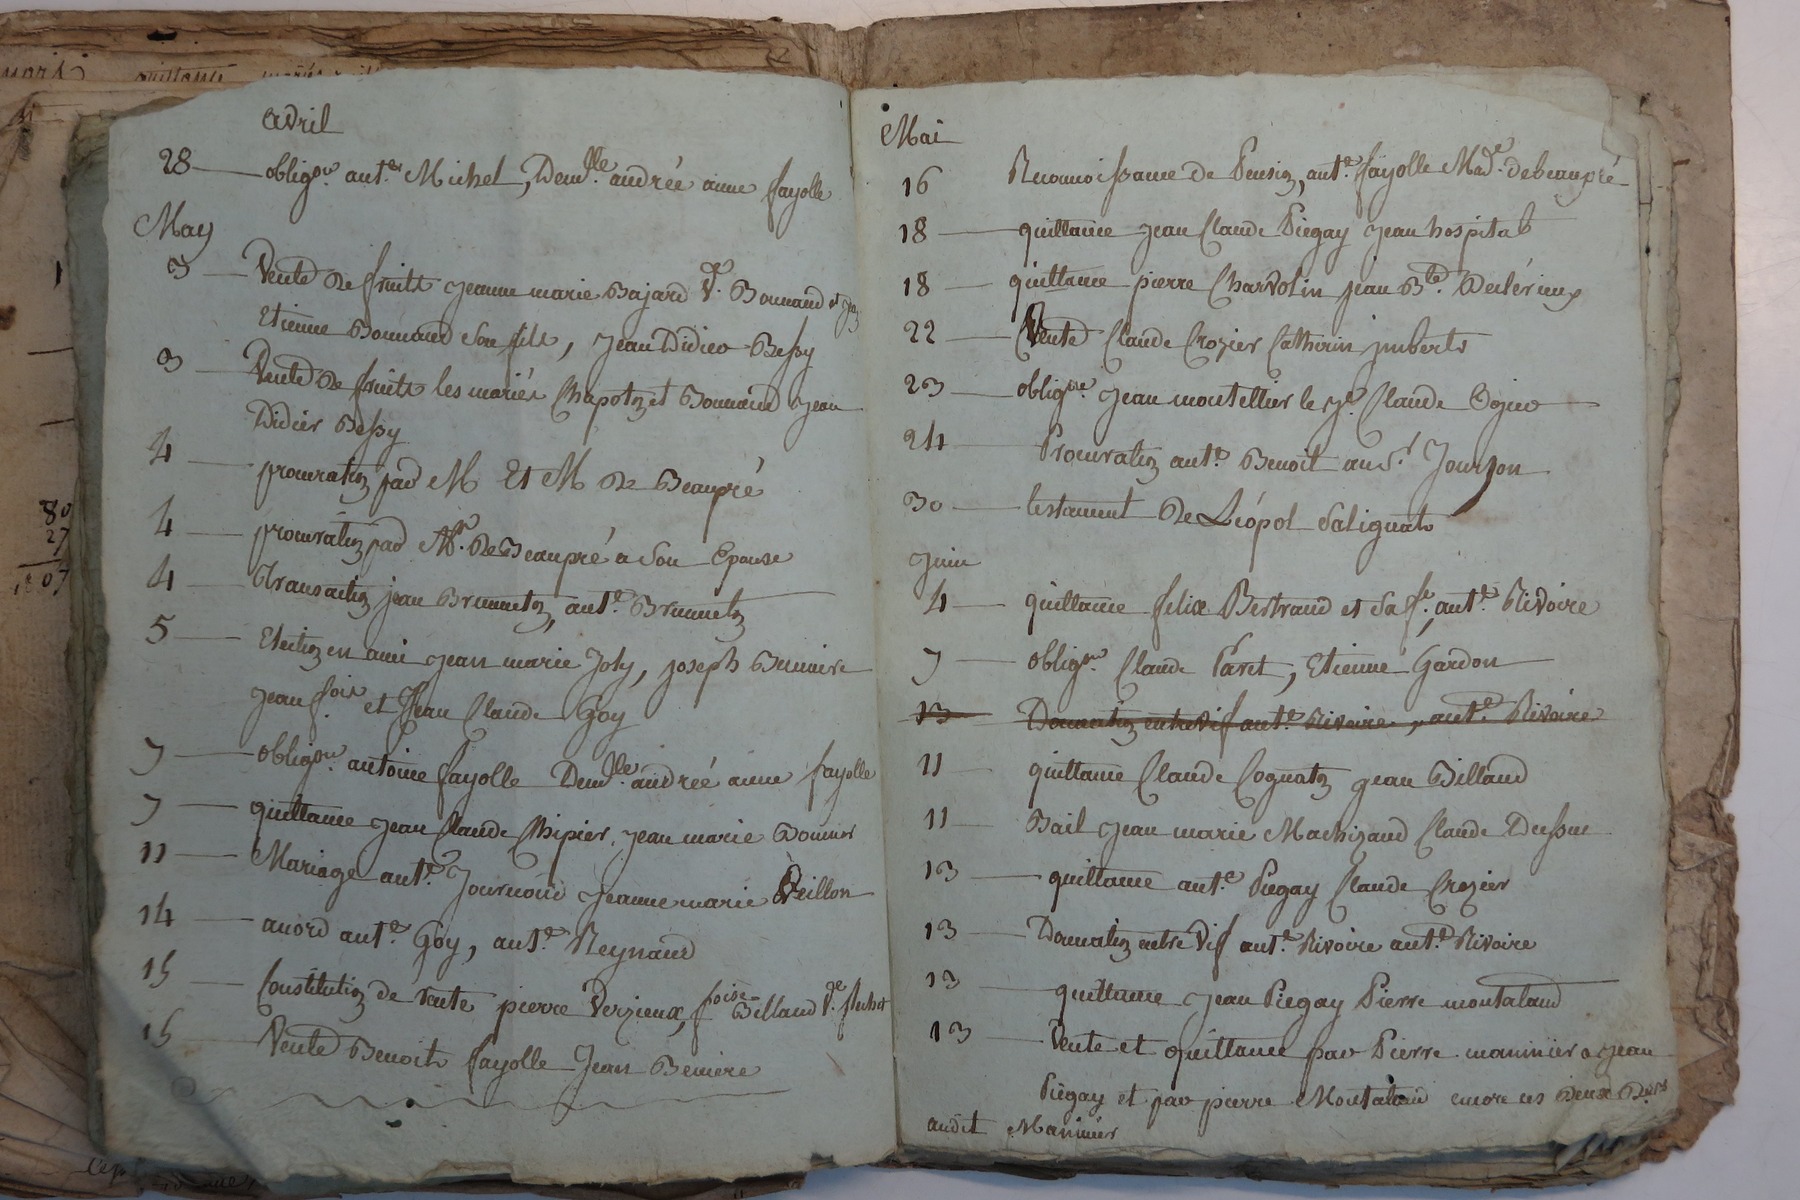 avril
28 — oblig.on ant.e Michel, Demlle andrée anne fayolle
May
3 — Vente de fruits jeanne marie Bajard V.e Bonnand et
Etienne Bonnand son fils, jean Didier Bessy
3 — Vente de fruits les mariés Chapoton et Bonnand jean
Didier Bessy
4 — procuration par M Et M de Beaupré
4 — procuration par Mr. de Beaupré a son Epouse
4 — Transaction jean Brunneton, ant.e Brunneton
5 — Election en ami jean marie Joly, joseph Bruniere
jean fois et jean Claude Goy
7 — oblig.on antoine fayolle Demlle andrée anne fayolle
7 — quittance jean Claude Chipier, jean marie Bonnier
11 — Mariage ant.e Journoud jeanne marie Veillon
14 — acord ant.e Goy, ant.e Reynaud
15 — Constitution de rente pierre Verzieux, foise Billaud V.e
15 — Vente Benoit fayolle Jean Beniere
Mai
16 Reconnoissance de Pension, ant.e fayolle Made. de beaupré
18 — quittance jean Claude Piegay jean hospital
18 — quittance pierre Charvolin jean Bte. Declérieux
22 — Vente Claude Crozier Catherin jmbert
23 — oblig.on jean montellier le je. Claude Ogier
24 — Procuration ant.e Benoit au Sr. Jourjon
30 — testament de Léopol Salignat
Juin
4 — quittance felix Bertrand et sa fe, ant.e Rivoire
7 — oblig.on Claude Paret, Etienne Gardon
13 — Donnation entrevif ant.e Rivoire, ant.e Rivoire
11 — quittance Claude Cognaton jean Billaud
11 — Bail jean marie Machizaud Claude Dussuc
13 — quittance ant.e Piegay Claude Crozier
13 — Donnation entre vif ant.e Rivoire ant.e Rivoire
13 — quittance jean Piegay Pierre montaland
13 — Vente et quittance par Pierre maninier a jean
Piegay et par pierre Montaland encore es deux
audit Maninier